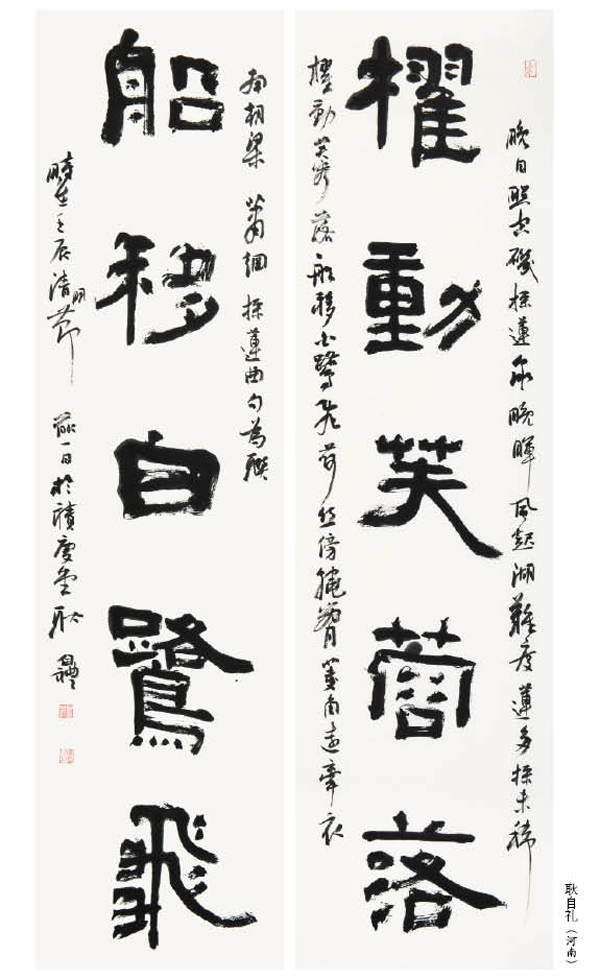 晚日照空磯採蓮承晚暉風起湖難度蓮多採未稀
櫂動芙蓉落
櫂動芙蓉落船移白鷺飛荷絲傍繞菱角遠牽衣
南朝梁蕭綱採蓮曲句為聯
船移白鷺飛
時在壬辰清明節前一日於積慶堂耿
耿自礼（河南）